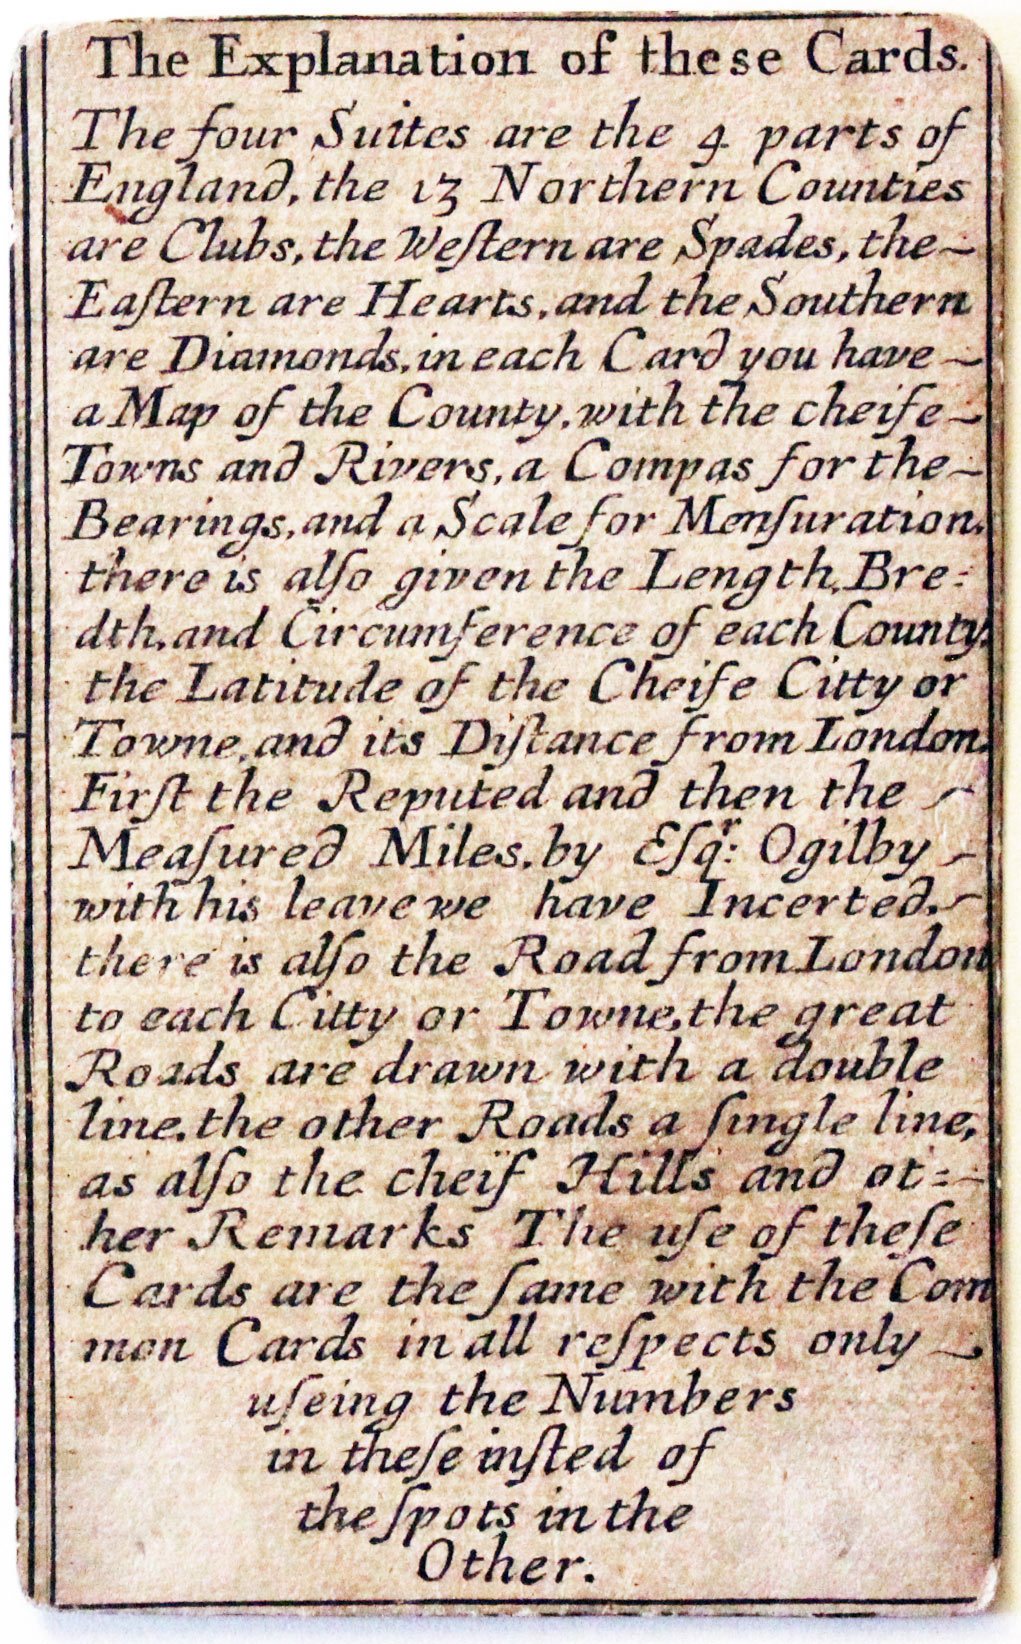 The Explanation of these Cards.
The four Suites are the 4 parts of
England, the 13 Northern Counties
are Clubs, the Weſtern are Spades, the~
Eaſtern are Hearts, and the Southern
are Diamonds, in each Card you have~
a Map of the County, with the cheife~
Towns and Rivers, a Compas for the~
Bearings, and a Scale for Menſuration,
there is alſo given the Length, Bre=
dth, and Circumference of each County,
the Latitude of the Cheife Citty or
Towne, and its Diſtance from London.
Firſt the Reputed and then the ~
Meaſured Miles, by Eſqr: Ogilby ~
with his leave we have Incerted.~
there is alſo the Road from London
to each Citty or Towne, the great
Roads are drawn with a double
line, the other Roads a ſingle line,
as alſo the cheif Hills and ot=~
her Remarks The uſe of theſe
Cards are the ſame with the Com
mon Cards in all reſpects only ~
uſeing the Numbers
in theſe inſted of
the ſpots in the
Other.